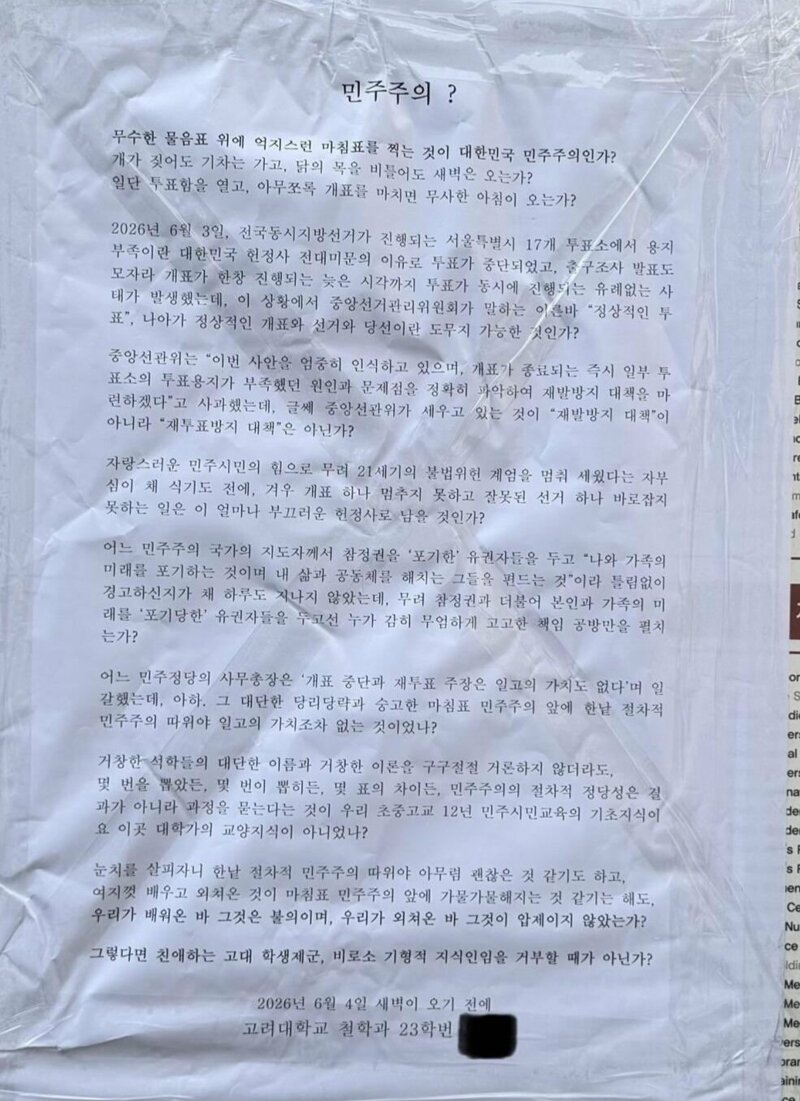 민주주의 ?
무수한 물음표 위에 억지스런 마침표를 찍는 것이 대한민국 민주주의인가?
개가 짖어도 기차는 가고, 닭의 목을 비틀어도 새벽은 오는가?
일단 투표함을 열고, 아무쪼록 개표를 마치면 무사한 아침이 오는가?
2026년 6월 3일, 전국동시지방선거가 진행되는 서울특별시 17개 투표소에서 용지
부족이란 대한민국 헌정사 전대미문의 이유로 투표가 중단되었고, 출구조사 발표도
모자라 개표가 한창 진행되는 늦은 시각까지 투표가 동시에 진행되는 유례없는 사
태가 발생했는데, 이 상황에서 중앙선거관리위원회가 말하는 이른바 “정상적인 투
표”, 나아가 정상적인 개표와 선거와 당선이란 도무지 가능한 것인가?
중앙선관위는 “이번 사안을 엄중히 인식하고 있으며, 개표가 종료되는 즉시 일부 투
표소의 투표용지가 부족했던 원인과 문제점을 정확히 파악하여 재발방지 대책을 마
련하겠다”고 사과했는데, 글쎄 중앙선관위가 세우고 있는 것이 “재발방지 대책”이
아니라 “재투표방지 대책”은 아닌가?
자랑스러운 민주시민의 힘으로 무려 21세기의 불법위헌 계엄을 멈춰 세웠다는 자부
심이 채 식기도 전에, 겨우 개표 하나 멈추지 못하고 잘못된 선거 하나 바로잡지
못하는 일은 이 얼마나 부끄러운 헌정사로 남을 것인가?
어느 민주주의 국가의 지도자께서 참정권을 ‘포기한’ 유권자들을 두고 “나와 가족의
미래를 포기하는 것이며 내 삶과 공동체를 해치는 그들을 편드는 것”이라 틀림없이
경고하신지가 채 하루도 지나지 않았는데, 무려 참정권과 더불어 본인과 가족의 미
래를 ‘포기당한’ 유권자들을 두고선 누가 감히 무엄하게 고고한 책임 공방만을 펼치
는가?
어느 민주정당의 사무총장은 ‘개표 중단과 재투표 주장은 일고의 가치도 없다’며 일
갈했는데, 아하. 그 대단한 당리당략과 숭고한 마침표 민주주의 앞에 한낱 절차적
민주주의 따위야 일고의 가치조차 없는 것이었나?
거창한 석학들의 대단한 이름과 거창한 이론을 구구절절 거론하지 않더라도,
몇 번을 뽑았든, 몇 번이 뽑히든, 몇 표의 차이든, 민주주의의 절차적 정당성은 결
과가 아니라 과정을 묻는다는 것이 우리 초중고교 12년 민주시민교육의 기초지식이
요 이곳 대학가의 교양지식이 아니었나?
눈치를 살피자니 한낱 절차적 민주주의 따위야 아무렴 괜찮은 것 같기도 하고,
여지껏 배우고 외쳐온 것이 마침표 민주주의 앞에 가물가물해지는 것 같기는 해도,
우리가 배워온 바 그것은 불의이며, 우리가 외쳐온 바 그것이 압제이지 않았는가?
그렇다면 친애하는 고대 학생제군, 비로소 기형적 지식인임을 거부할 때가 아닌가?
2026년 6월 4일 새벽이 오기 전에
고려대학교 철학과 23학번